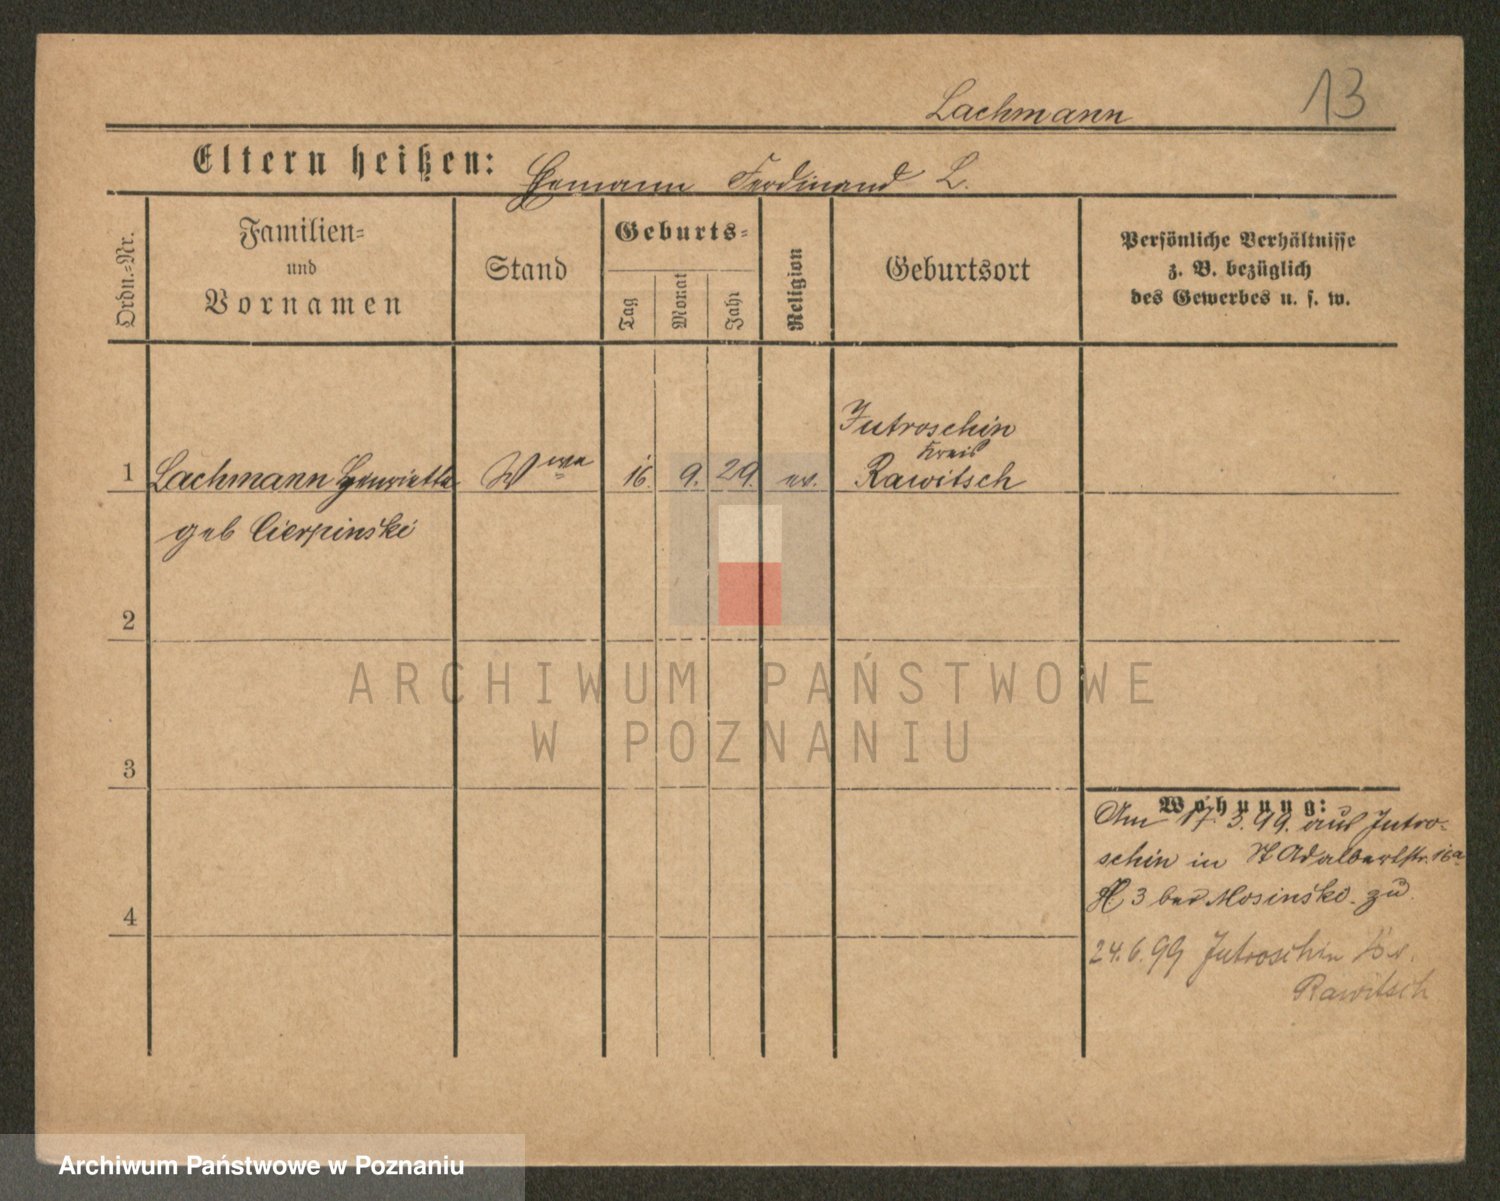 13
Lachmann
Eltern heißen: Hemann Ferdinand L.
Ordn.-Nr.
Familien-
und
Vornamen
Stand
Geburts-
Tag
Monat
Jahr
Religion
Geburtsort
Persönliche Verhältnisse
z. B. bezüglich
des Gewerbes u. s. w.
Jutroschin
Kreis
1 Lachmann Henriette Wwe 16. 9. 29. ev. Rawitsch
geb Cierpinski
2
3
4
Wohnung:
Am 17. 3. 99. aus Jutro-
schin in St Adalbertstr. 16a
H 3 bei Mosinski. zu
24. 6. 99 Jutroschin
Rawitsch
ARCHIWUM PAŃSTWOWE
W POZNANIU
Archiwum Państwowe w Poznaniu